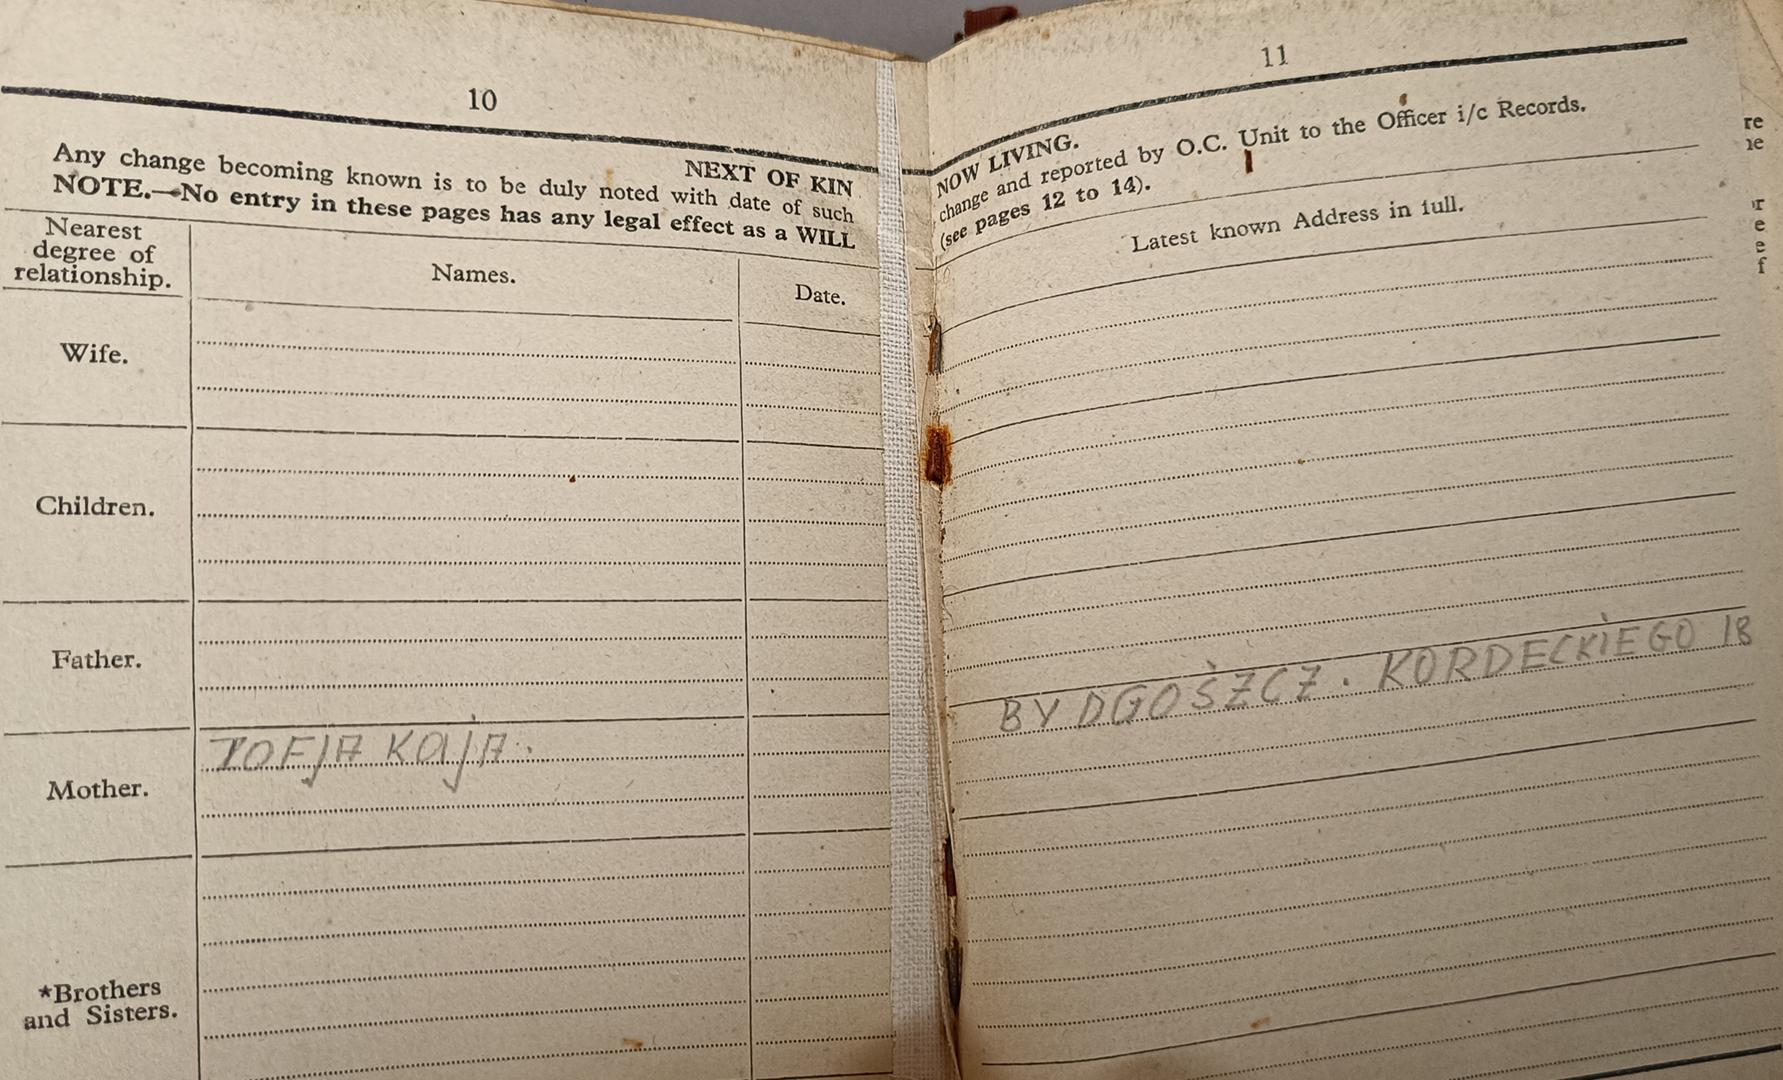 10
NEXT OF KIN
Any change becoming known is to be duly noted with date of such
NOTE.—No entry in these pages has any legal effect as a WILL
Nearest
degree of
relationship.
Names.
Date.
Wife.
Children.
Father.
Mother.
ZOFJA KOJA.
*Brothers
and Sisters.
11
NOW LIVING.
change and reported by O.C. Unit to the Officer i/c Records.
(see pages 12 to 14).
Latest known Address in full.
BYDGOSZCZ. KORDECKIEGO 18
re
r
e
e
f